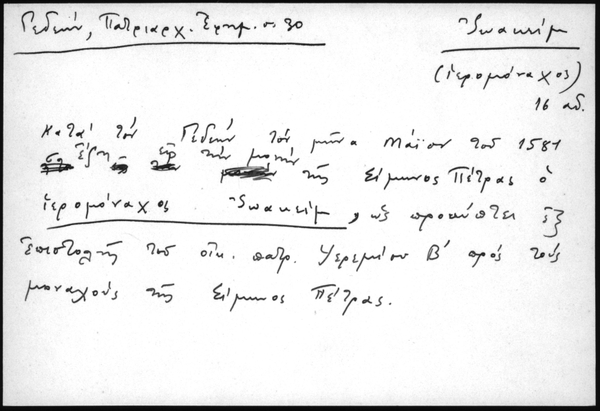 Γεδεών, Πατριαρχ. Ἐφημ. σ. 30
Ἰωακείμ
(ἱερομόναχος)
16 αἰ.
Κατά τόν Γεδεών τόν μῆνα Μάϊον τοῦ 1581
ἔζη εἰς τήν μονήν τῆς Σίμωνος Πέτρας ὁ
ἱερομόναχος Ἰωακείμ, ὡς προκύπτει ἐξ
ἐπιστολῆς τοῦ οἰκ. πατρ. Ἱερεμίου Β' πρός τούς
μοναχούς τῆς Σίμωνος Πέτρας.